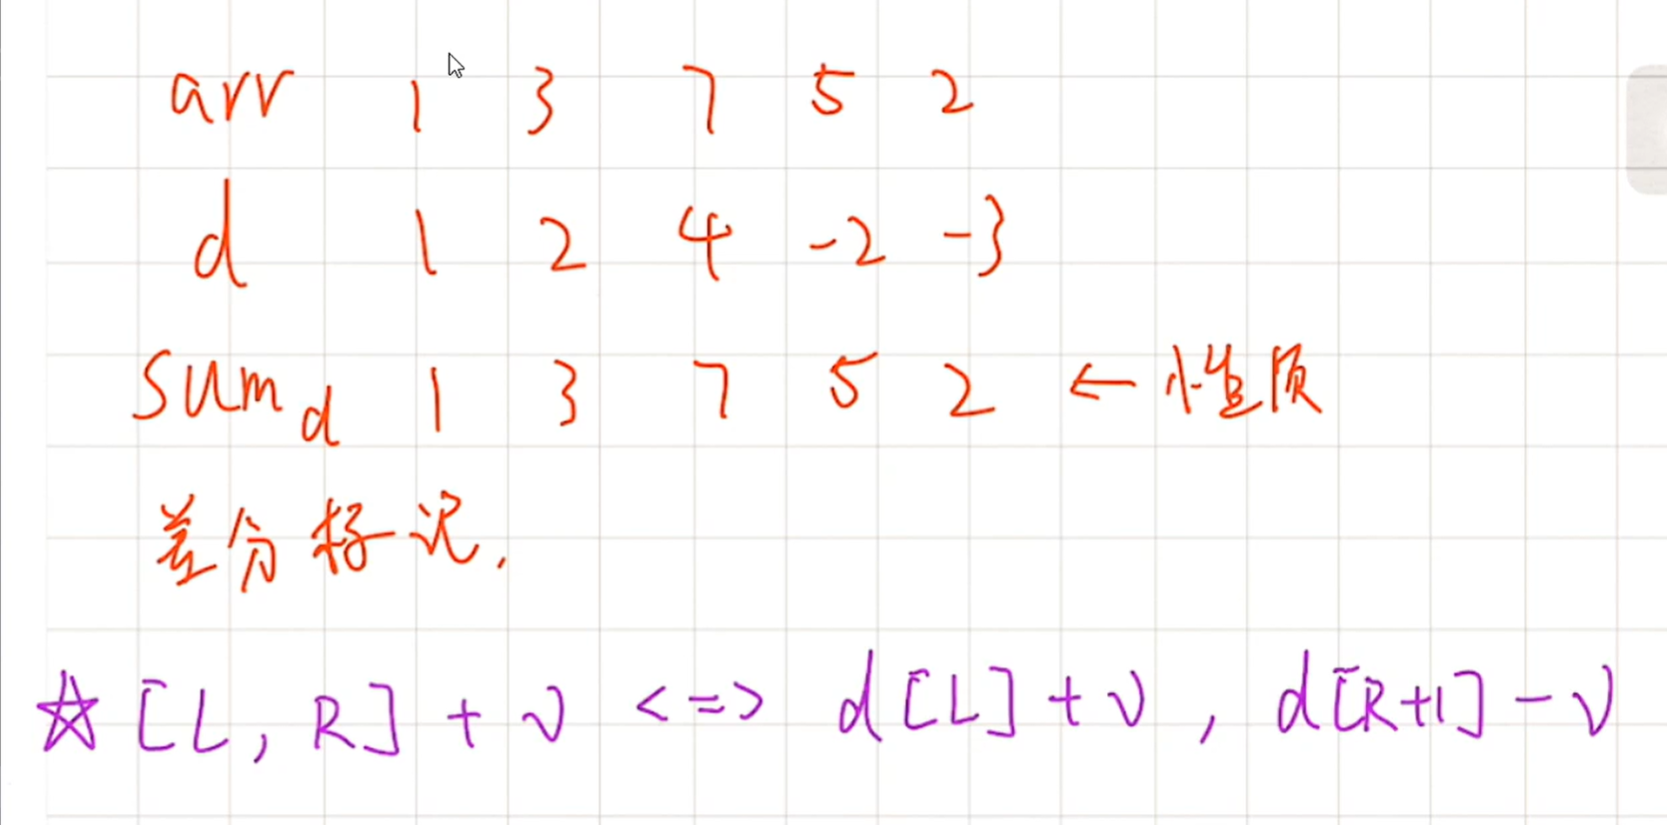 arr 1 3 7 5 2
d 1 2 4 -2 -3
sum d 1 3 7 5 2 ← 性质
差分标记.
☆ [L, R] + v <=> d[L] + v, d[R+1] - v